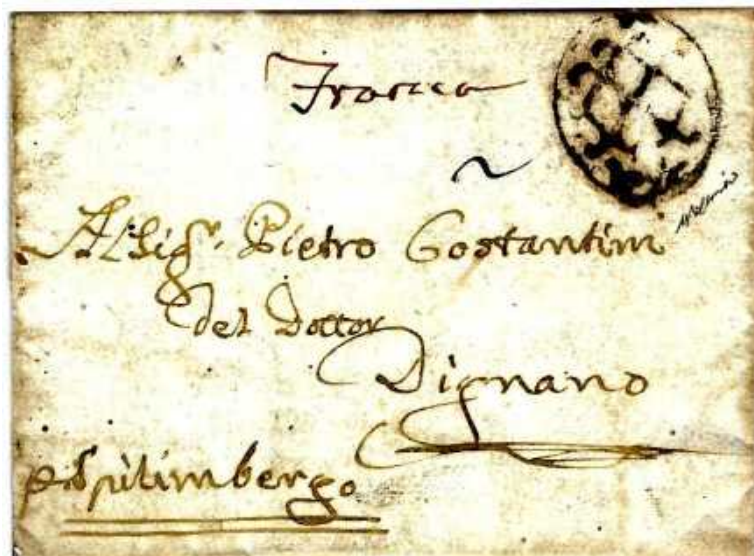 Franca
Al Sig.r Pietro Costantini
del Dottor
Dignano
p Spilimbergo